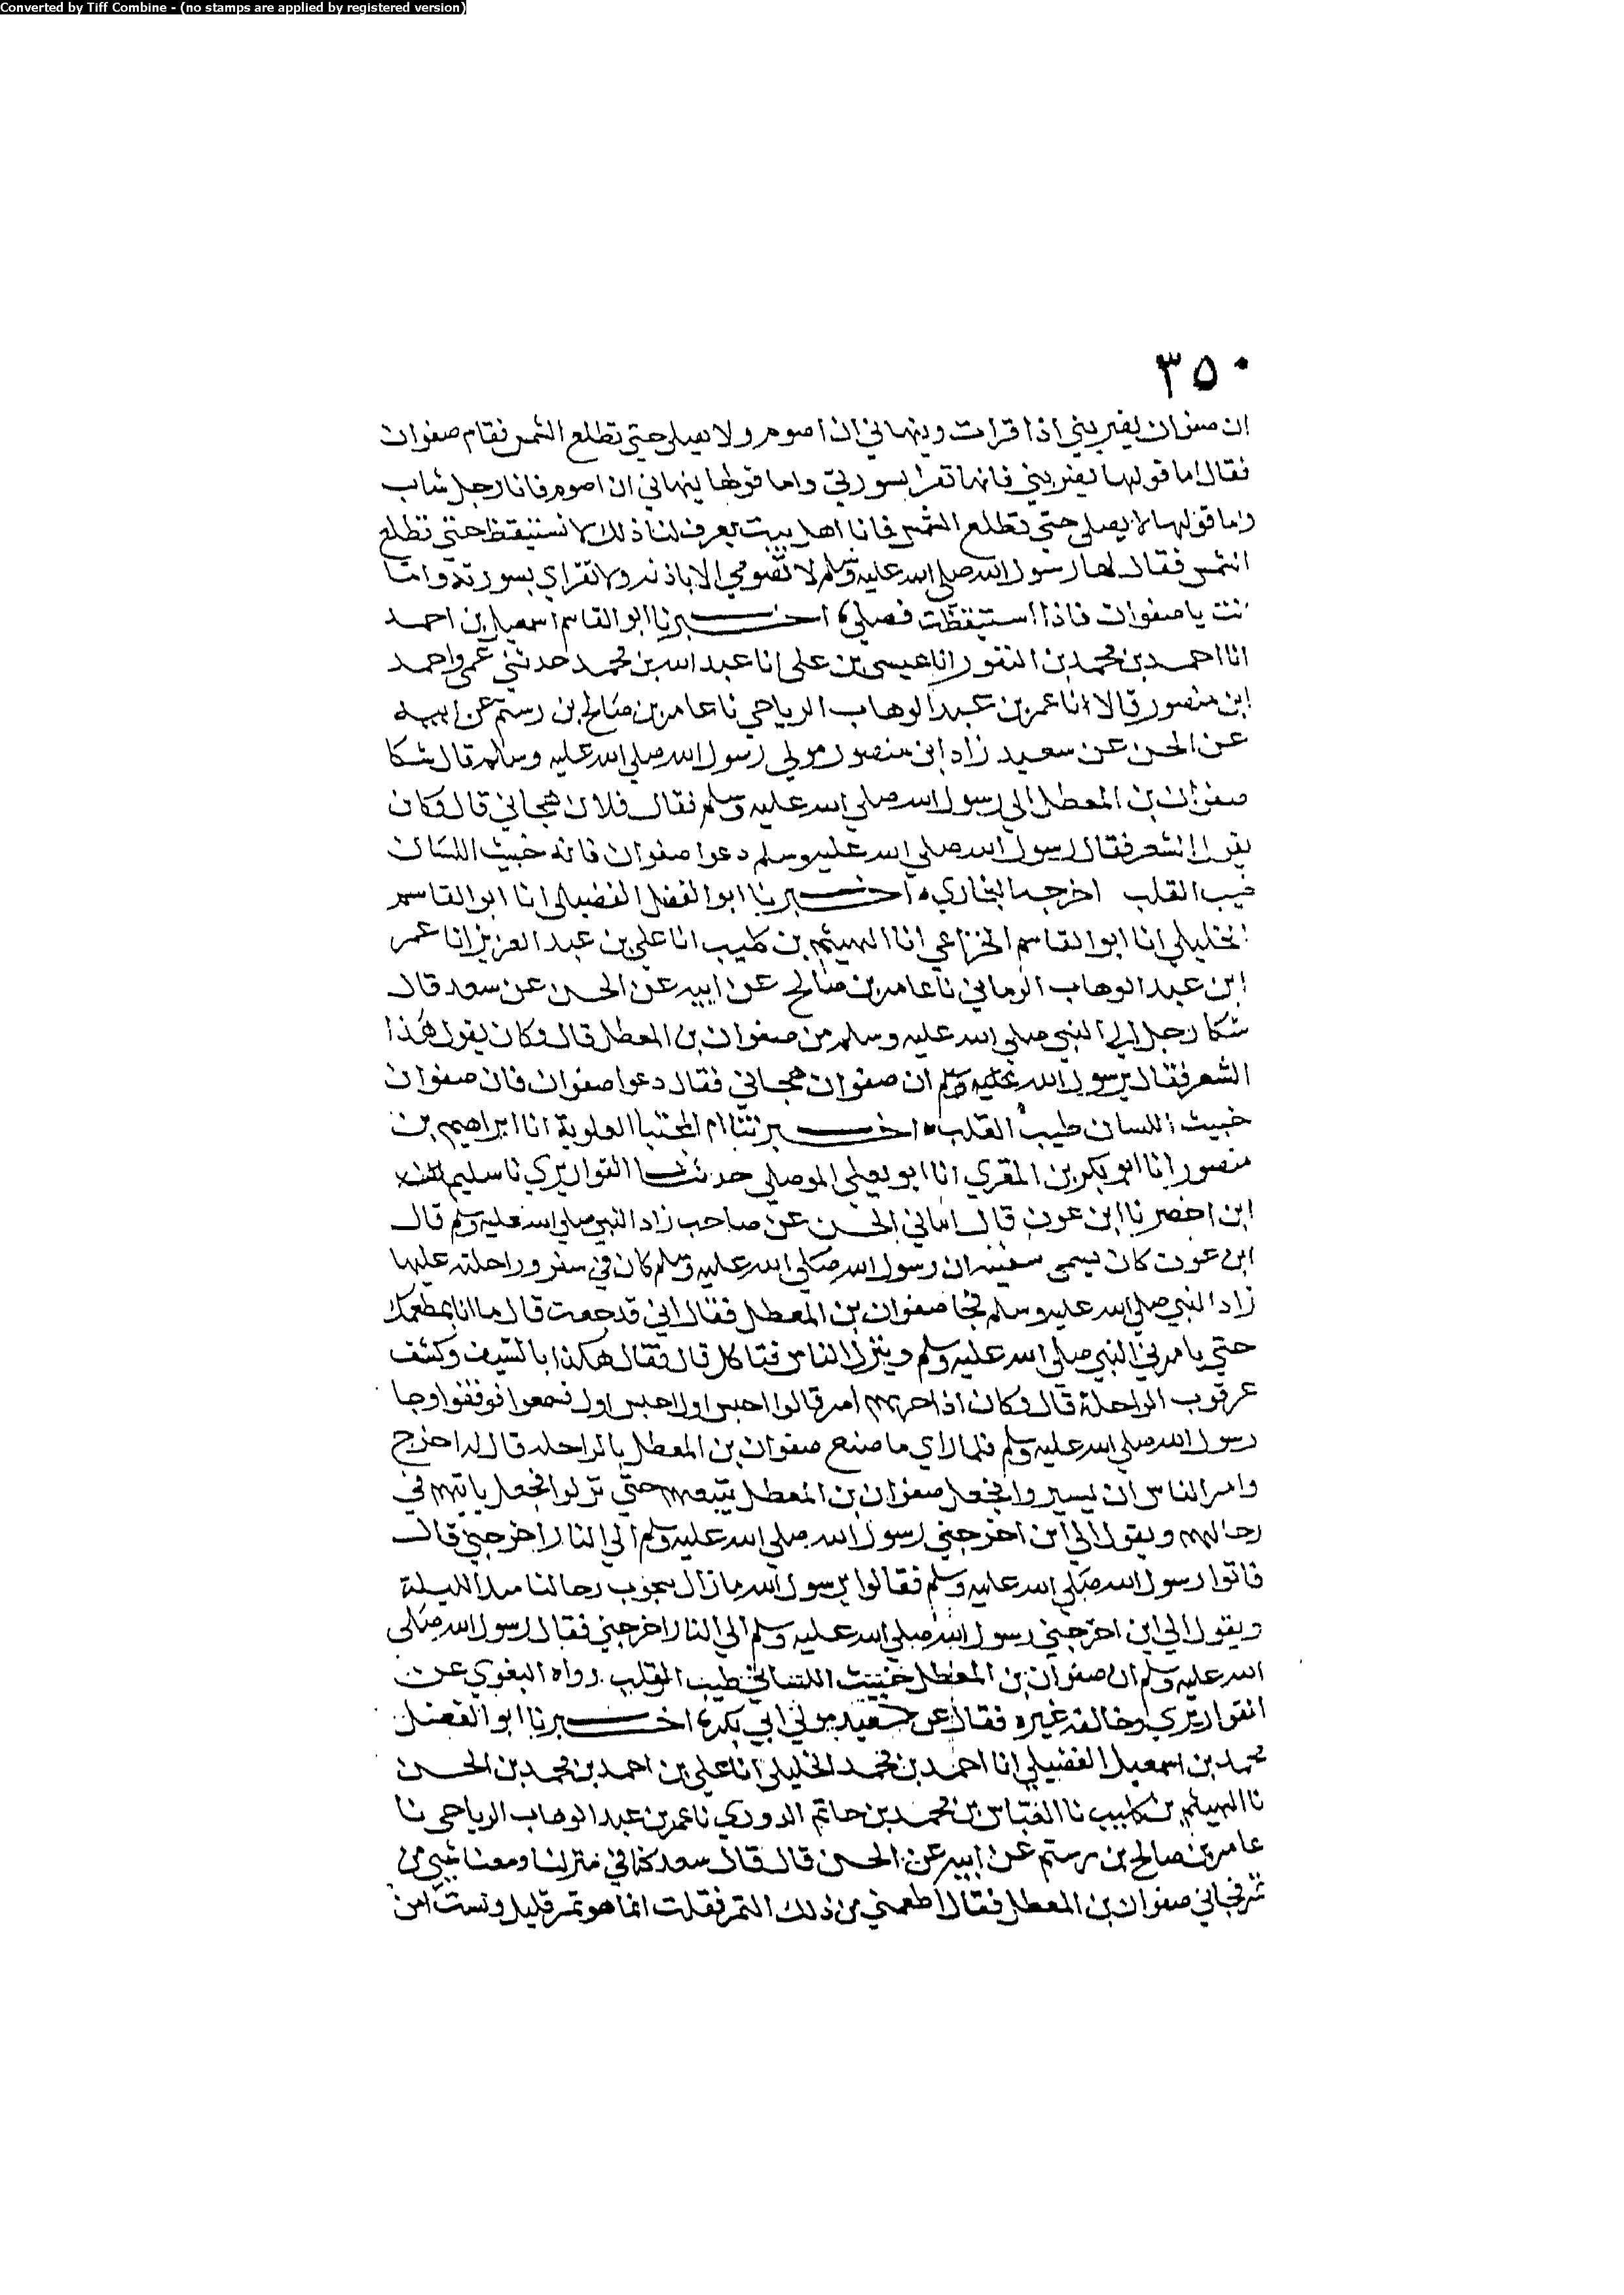 Converted by Tiff Combine - (no stamps are applied by registered version)
٣٥٠
ان صفوان يضربني اذا قرات وينهاني ان اصوم ولا يصلي حتي تطلع الشمس فقام صفوان
فقال اما قولها يضربني فانها تقرا بسورتي واما قولها ينهاني ان اصوم فانا رجل شاب
واما قولها لا يصلي حتي تطلع الشمس فانا اهل بيت يعرف لنا ذلك لا نستيقظ حتي تطلع
الشمس فقال لها رسول الله صلي الله عليه وسلم لا تصومي الا باذنه ولا تقراي بسورته واما
انت يا صفوان فاذا استيقظت فصلي اخبرنا ابو القاسم اسمعيل بن احمد
انا احمد بن محمد بن النقور انا عيسي بن علي انا عبد الله بن محمد حدثني عمي واحمد
ابن منصور قالا انا عمر بن عبد الوهاب الرياحي نا عامر بن صالح بن رستم عن ابيه
عن الحسن عن سعيد زاد ابن منصور مولي رسول الله صلي الله عليه وسلم قال شكا
صفوان بن المعطل الي رسول الله صلي الله عليه وسلم فقال فلان هجاني قال وكان
يقول الشعر فقال رسول الله صلي الله عليه وسلم دعوا صفوان فانه خبيث اللسان
طيب القلب اخرجه البخاري اخبرنا ابو الفضل الفضيلي انا ابو القاسم
الخليلي انا ابو القاسم الخزاعي انا الهيثم بن كليب انا علي بن عبد العزيز انا عمر
ابن عبد الوهاب الرماني نا عامر بن صالح عن ابيه عن الحسن عن سعد قال
شكا رجل الي النبي صلي الله عليه وسلم من صفوان بن المعطل قال وكان يقول هذا
الشعر فقال يرسول الله عليه وسلم ان صفوان هجاني فقال دعوا صفوان فان صفوان
خبيث اللسان طيب القلب اخبرتنا ام المجتبا العلوية انا ابراهيم بن
منصور انا ابو بكر بن المقري انا ابو يعلي الموصلي حدثنا القواريري نا سليم
ابن اخضر نا ابن عون قال انباني الحسن عن صاحب زاد النبي صلي الله عليه وسلم قال
ابن عون كان يسمي سفينه ان رسول الله صلي الله عليه وسلم كان في سفر وراحلته عليها
زاد النبي صلي الله عليه وسلم فجا صفوان بن المعطل فقال اني قد جعت قال ما انا بمطعمك
حتي يامرني النبي صلي الله عليه وسلم وينزل الناس فتاكل قال فقال هكذا بالسيف وكشف
عرقوب الراحلة قال وكان اذا حزبهم امر قالوا احبس اول احبس اول فسمعوا فوقفوا وجا
رسول الله صلي الله عليه وسلم فلما راي ما صنع صفوان بن المعطل بالراحله قال له اخرج
وامر الناس ان يسيروا فجعل صفوان بن المعطل يتبعهم حتي نزلوا فجعل ياتيهم في
رحالهم ويقول الي اين اخرجني رسول الله صلي الله عليه وسلم الي النار اخرجني قال
فاتوا رسول الله صلي الله عليه وسلم فقالوا يرسول الله ما زال يجوب رحالنا منذ الليلة
ويقول الي اين اخرجني رسول الله صلي الله عليه وسلم الي النار اخرجني فقال رسول الله صلي
الله عليه وسلم ان صفوان بن المعطل خبيث اللسان طيب القلب رواه البغوي عن
القواريري وخالفه غيره فقال عن سعيد مولي ابي بكر اخبرنا ابو الفضل
محمد بن اسمعيل الفضيلي انا احمد بن محمد الخليلي انا علي بن احمد بن محمد بن الحسن
نا الهيثم بن كليب نا العباس بن محمد بن حاتم الدوري نا عمر بن عبد الوهاب الرياحي نا
عامر بن صالح بن رستم عن ابيه عن الحسن قال قال سعد كنا في منزلنا ومعنا شي من
تمر فجاني صفوان بن المعطل فقال اطعمني من ذلك التمر فقلت انما هو تمر قليل ولست امن